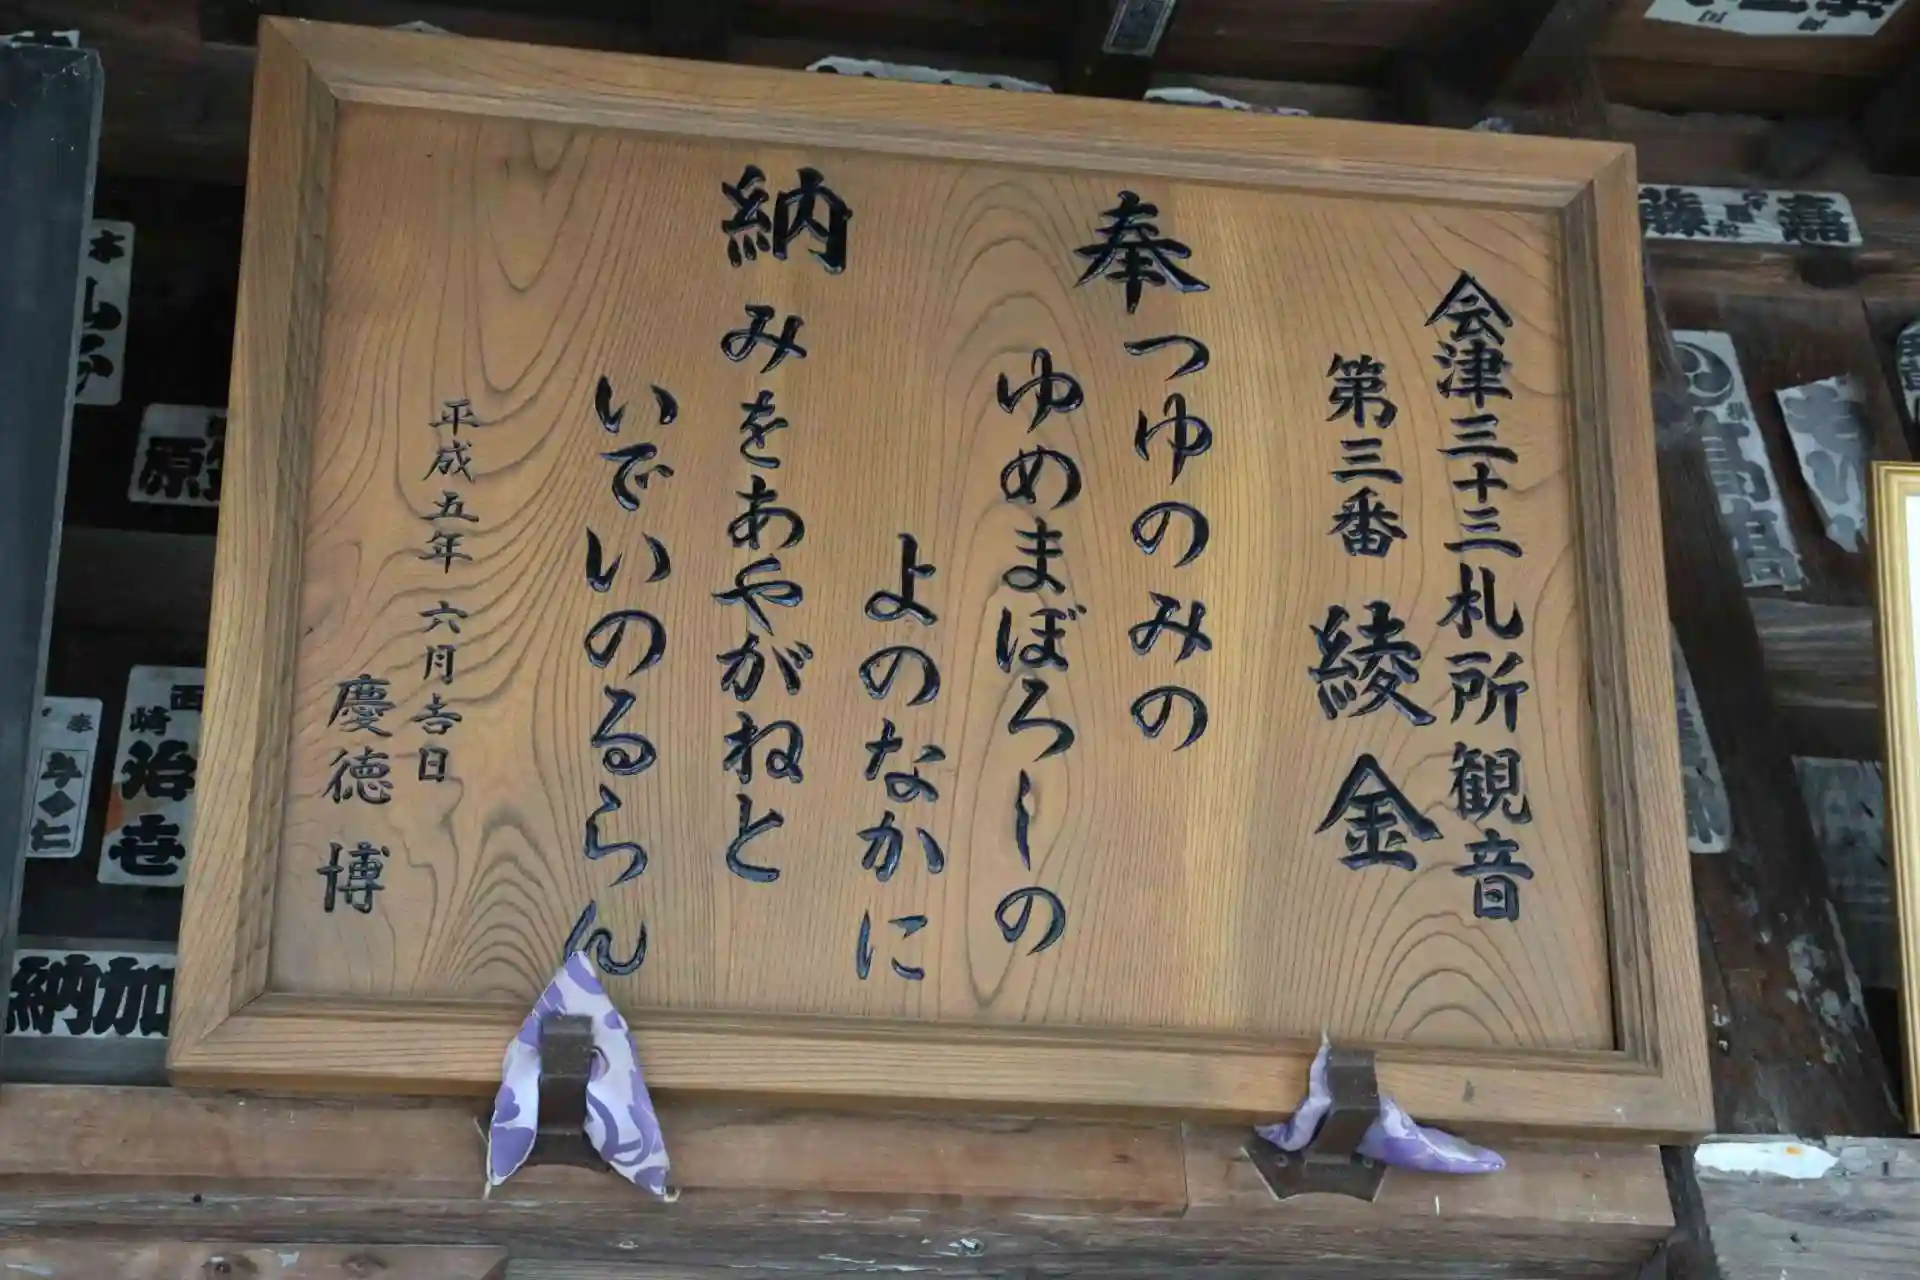 会津三十三札所観音
第三番 綾金
奉
つゆのみの
ゆめまぼろしの
よのなかに
納
みをあやがねと
いでいのるらん
平成五年六月吉日
慶徳博
嘉
藤
原
西
崎
治
納加